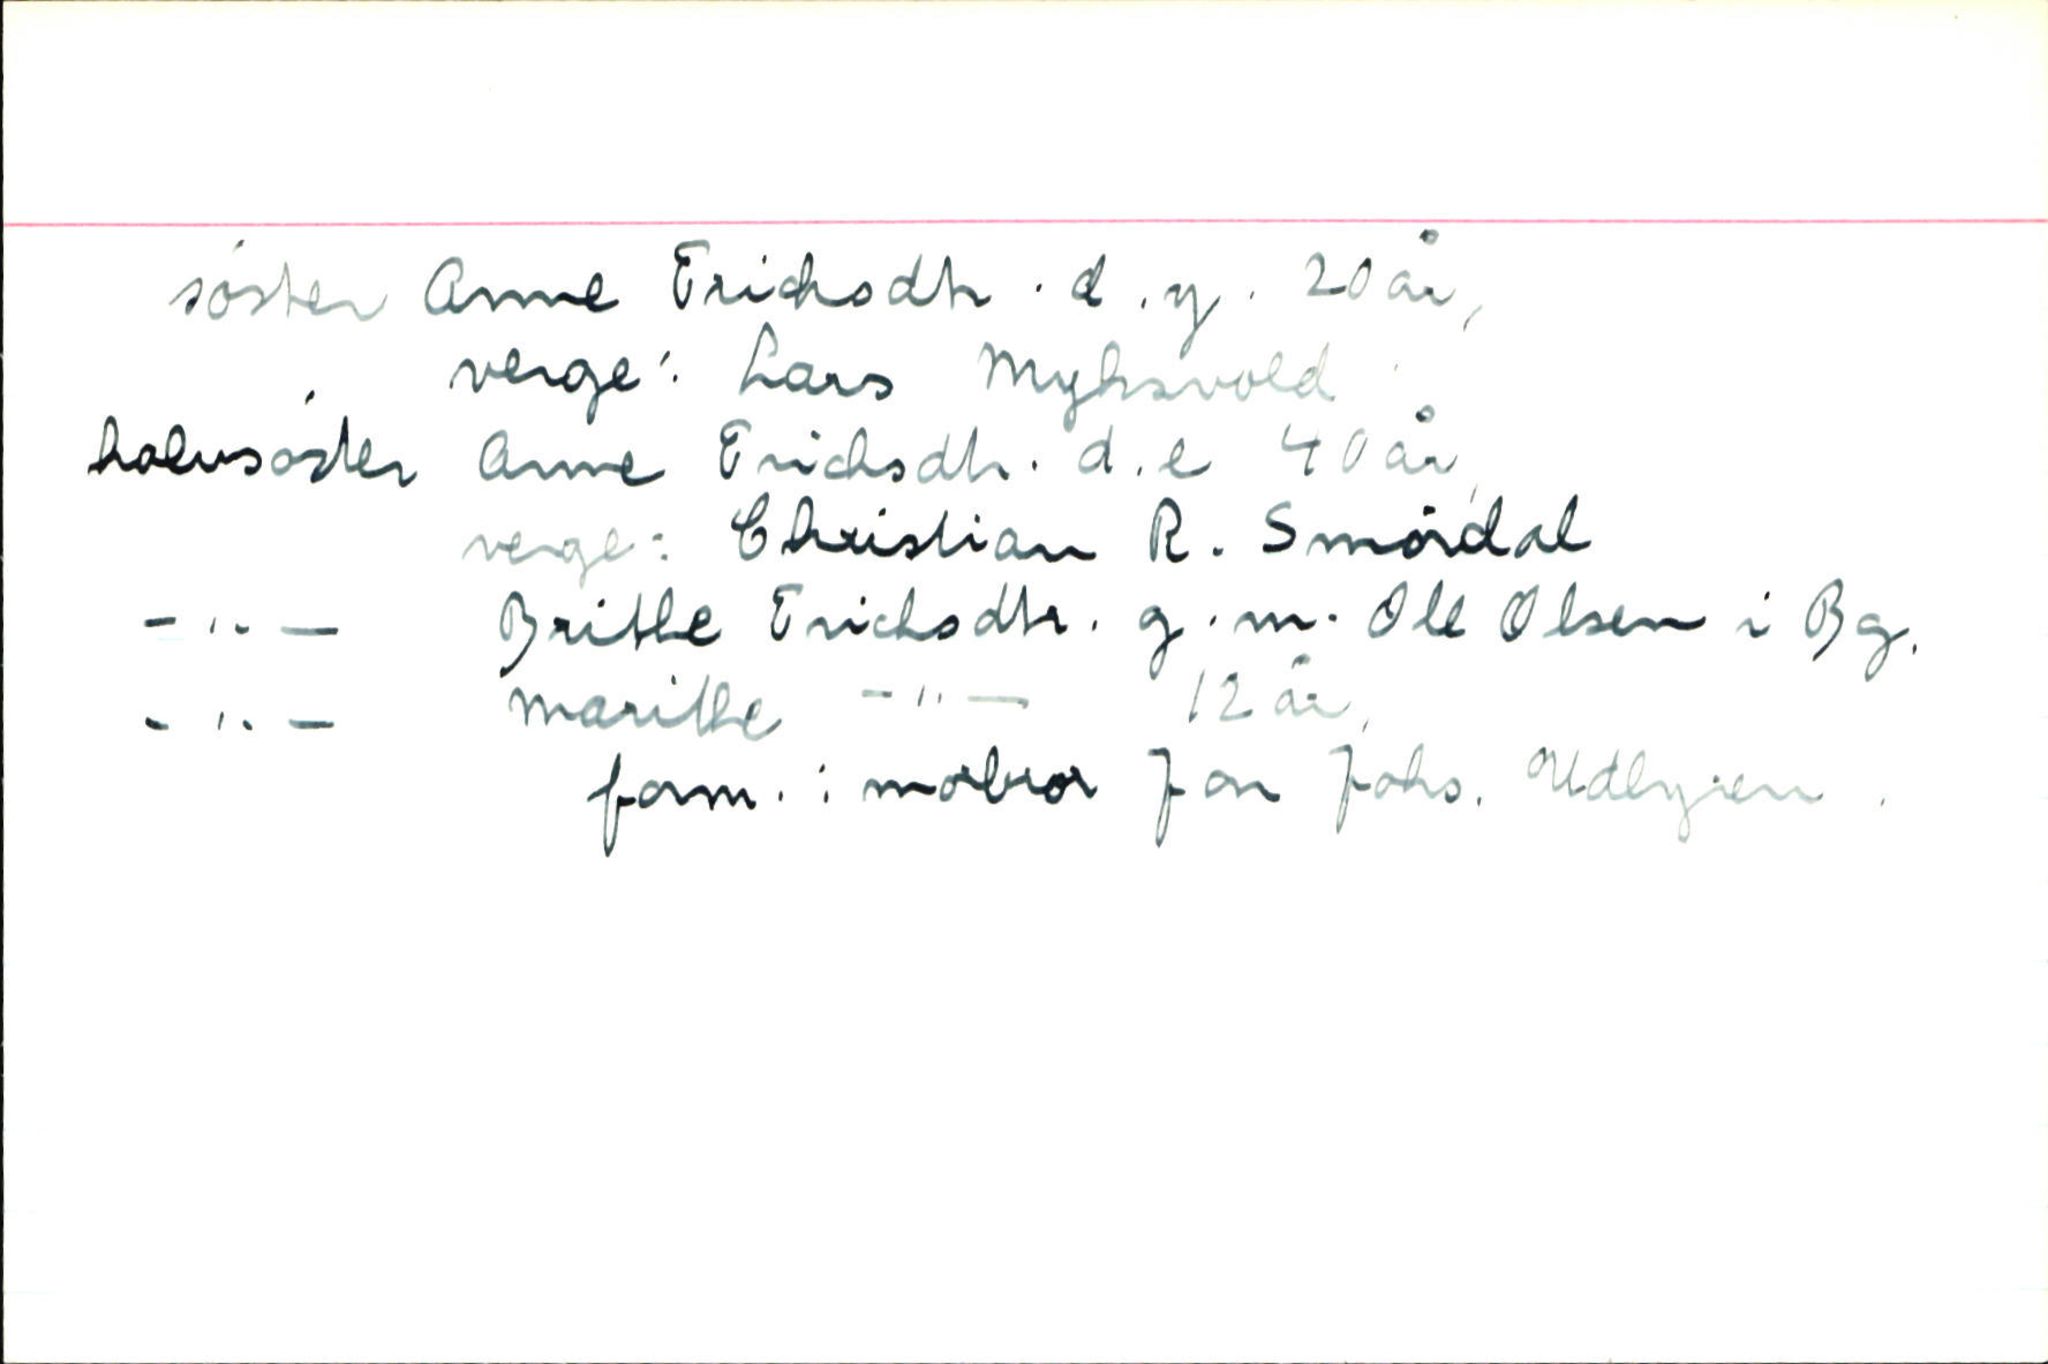 søster Anne Erichsdtr. d.y. 20 år,
verge: Lars Myksvold
halvsøster Anne Erichsdtr. d.e 40 år,
verge: Christian R. Smørdal
- " - Brithe Erichsdtr. g.m. Ole Olsen i Bg.
- " - Marithe - " - 12 år,
form.: morbror Jon Johs. Udbyren.